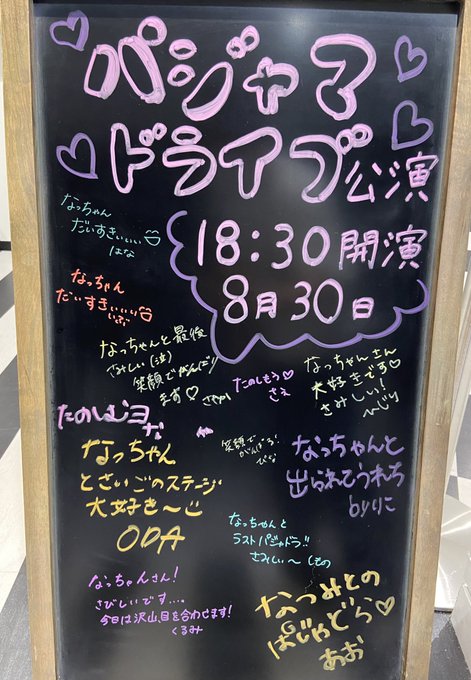 パジャマ
ドライブ公演
18:30開演
8月30日
なっちゃん
だいすきぃぃぃ
はな
なっちゃん
だいすきぃぃぃ
いぶ
なっちゃんと最後
さみしい(泣)
笑顔でがんばり
ます♡
たのしもう♡
さえ
なっちゃんさん
大好きです♡
さみしい!
たのしむヨ
笑顔で
がんばる!
ひな
なっちゃん
とさいごのステージ
大好き〜
ODA
なっちゃんと
出られてうれち
byりこ
なっちゃんと
ラストパジャドラ!!
さみしい〜
なっちゃんさん!
さびしいです....。
今日は沢山目を合わせます!
くるみ
なつみとの
ぱじゃどら♡
あお